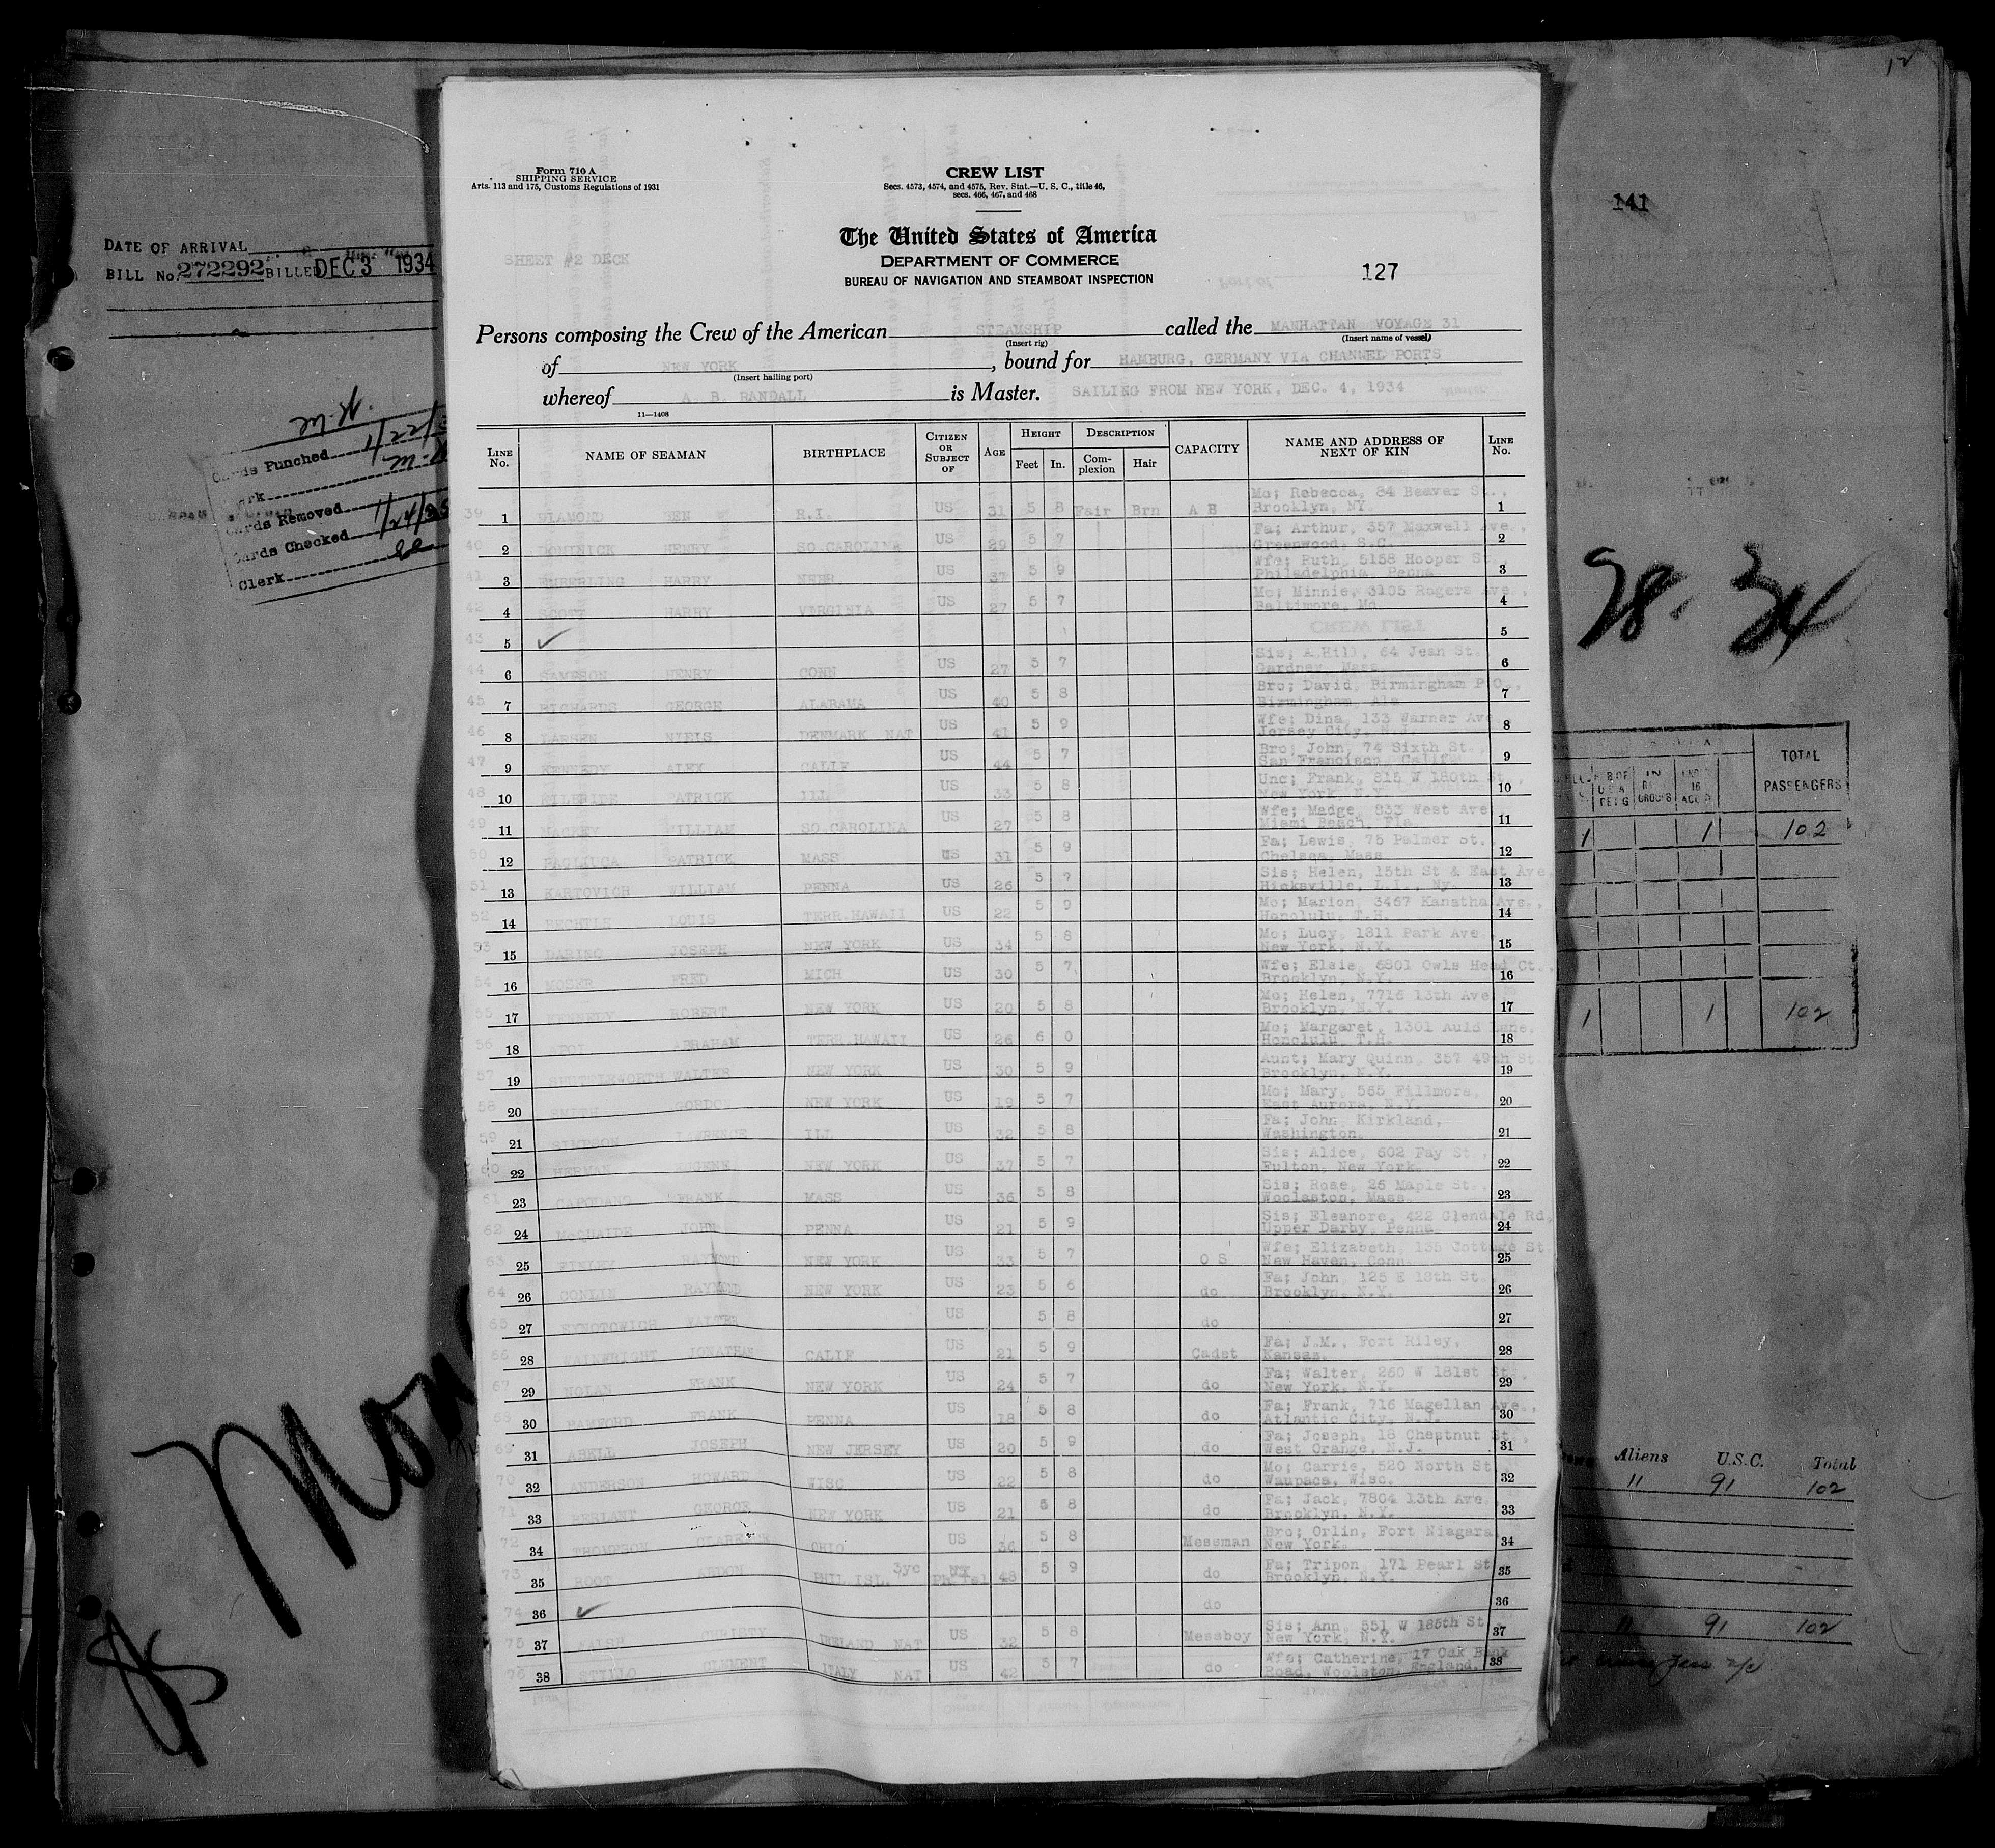 Form 710 A
SHIPPING SERVICE
Arts. 113 and 175, Customs Regulations of 1931
CREW LIST
Secs. 4573, 4574, and 4575, Rev. Stat.—U. S. C., title 46,
secs. 466, 467, and 468
The United States of America
DEPARTMENT OF COMMERCE
BUREAU OF NAVIGATION AND STEAMBOAT INSPECTION
SHEET #2 DECK
127
Persons composing the Crew of the American STEAMSHIP called the MANHATTAN VOYAGE 31
(Insert rig) (Insert name of vessel)
of NEW YORK, bound for HAMBURG, GERMANY VIA CHANNEL PORTS
(Insert hailing port)
whereof A. B. RANDALL is Master. SAILING FROM NEW YORK, DEC. 4, 1934
11—1408
LINE No. NAME OF SEAMAN BIRTHPLACE CITIZEN OR SUBJECT OF AGE HEIGHT Feet In. DESCRIPTION Complexion Hair CAPACITY NAME AND ADDRESS OF NEXT OF KIN LINE No.
39 1 DIAMOND BEN R.I. US 31 5 8 Fair Brn A B Mo; Rebecca, 84 Beaver St., Brooklyn, NY. 1
40 2 DOMINICK HENRY SO.CAROLINA US 29 5 7 Fa; Arthur, 357 Maxwell Ave., Greenwood, S.C. 2
41 3 EMBERLING HARRY NEBR US 37 5 9 Wfe; Ruth, 5158 Hooper St Philadelphia, Penna 3
42 4 SCOTT HARRY VIRGINIA US 27 5 7 Mo; Minnie, 3105 Rogers Ave., Baltimore, Md. 4
43 5 ✓ 5
44 6 SAMPSON HENRY CONN US 27 5 7 Sis; A.Hill, 64 Jean St. Gardner, Mass 6
45 7 RICHARDS GEORGE ALABAMA US 40 5 8 Bro; David, Birmingham P.O., Birmingham, Ala 7
46 8 LARSEN NIELS DENMARK NAT US 41 5 9 Wfe; Dina, 133 Warner Ave Jersey City, N.J. 8
47 9 KENNEDY ALEX CALIF US 44 5 7 Bro; John, 74 Sixth St., San Francisco, Calif. 9
48 10 PATRICK ILL US 33 5 8 Unc; Frank, 815 W 180th St., New York, N.Y. 10
49 11 MACKEY WILLIAM SO.CAROLINA US 27 5 8 Wfe; Madge, 833 West Ave Miami Beach, Fla 11
50 12 PAGLIUCA PATRICK MASS US 31 5 9 Fa; Lewis, 75 Palmer St., Chelsea, Mass 12
51 13 KARTOVICH WILLIAM PENNA US 26 5 7 Sis; Helen, 15th St & East Ave, Hicksville, L.I., Ny. 13
52 14 BECHTLE LOUIS TERR.HAWAII US 22 5 9 Mo; Marion, 3467 Kanatha Ave., Honolulu, T.H. 14
53 15 DARINO JOSEPH NEW YORK US 34 5 8 Mo; Lucy, 1811 Park Ave. New York, N.Y. 15
54 16 MOSER FRED MICH US 30 5 7 Wfe; Elsie, 6801 Owls Head Ct., Brooklyn, N.Y. 16
55 17 KENNEDY ROBERT NEW YORK US 20 5 8 Mo; Helen, 7716 13th Ave Brooklyn, N.Y. 17
56 18 APOI ABRAHAM TERR.HAWAII US 26 6 0 Mo; Margaret, 1301 Auld Lane. Honolulu, T.H. 18
57 19 SHUTTLEWORTH WALTER NEW YORK US 30 5 9 Aunt; Mary Quinn, 357 49th St Brooklyn, N.Y. 19
58 20 SMITH GORDON NEW YORK US 19 5 7 Mo; Mary, 565 Fillmore, East Aurora, N.Y. 20
59 21 SIMPSON LAWRENCE ILL US 32 5 8 Fa; John, Kirkland, Washington. 21
60 22 HERMAN EUGENE NEW YORK US 37 5 7 Sis; Alice, 602 Fay St., Fulton, New York. 22
61 23 CAPODANO FRANK MASS US 36 5 8 Sis; Rose, 26 Maple St., Woolaston, Mass. 23
62 24 McQUAIDE JOHN PENNA US 21 5 9 Sis; Eleanore, 422 Glendale Rd, Upper Darby, Penna 24
63 25 FINLEY RAYMOND NEW YORK US 33 5 7 O S Wfe; Elizabeth, 135 Cottage St. New Haven, Conn. 25
64 26 CONLIN RAYMOND NEW YORK US 23 5 6 do Fa; John, 125 E 18th St. Brooklyn, N.Y. 26
65 27 SYNOTOWICS WALTER US 5 8 do 27
66 28 WAINWRIGHT JONATHAN CALIF US 21 5 9 Cadet Fa; J.M., Fort Riley, Kansas. 28
67 29 NOLAN FRANK NEW YORK US 24 5 7 do Fa; Walter, 260 W 181st St. New York, N.Y. 29
68 30 BAMFORD FRANK PENNA US 18 5 8 do Fa; Frank, 716 Magellan Ave., Atlantic City, N.J. 30
69 31 ABELL JOSEPH NEW JERSEY US 20 5 9 do Fa; Joseph, 18 Chestnut St., West Orange, N.J. 31
70 32 ANDERSON HOWARD WISC US 22 5 8 do Mo; Carrie, 520 North St Waupaca, Wisc. 32
71 33 PERLANT GEORGE NEW YORK US 21 5 8 do Fa; Jack, 7804 13th Ave. Brooklyn, N.Y. 33
72 34 THOMPSON CLARENCE OHIO US 36 5 8 Messman Bro; Orlin, Fort Niagara New York. 34
73 35 ROOT ABDON PHIL ISL. 3yc Ph Isl 48 5 9 do Fa; Tripon, 171 Pearl St Brooklyn, N.Y. 35
74 36 ✓ do 36
75 37 WALSH CHRISTY IRELAND NAT US 32 5 8 Messboy Sis; Ann, 551 W 185th St New York, N.Y. 37
76 38 STILLO CLEMENT ITALY NAT US 42 5 7 do Wfe; Catherine, 17 Oak Bank Road, Woolston, England. 38
DATE OF ARRIVAL
BILL No. 272292 BILLED DEC 3 1934
Cards Punched 11/22/
Clerk
Cards Removed
Cards Checked 11/24/35
Clerk
12
141
98. 34
TOTAL PASSENGERS
1 1 102
1 1 102
Aliens U.S.C. Total
11 91 102
11 91 102